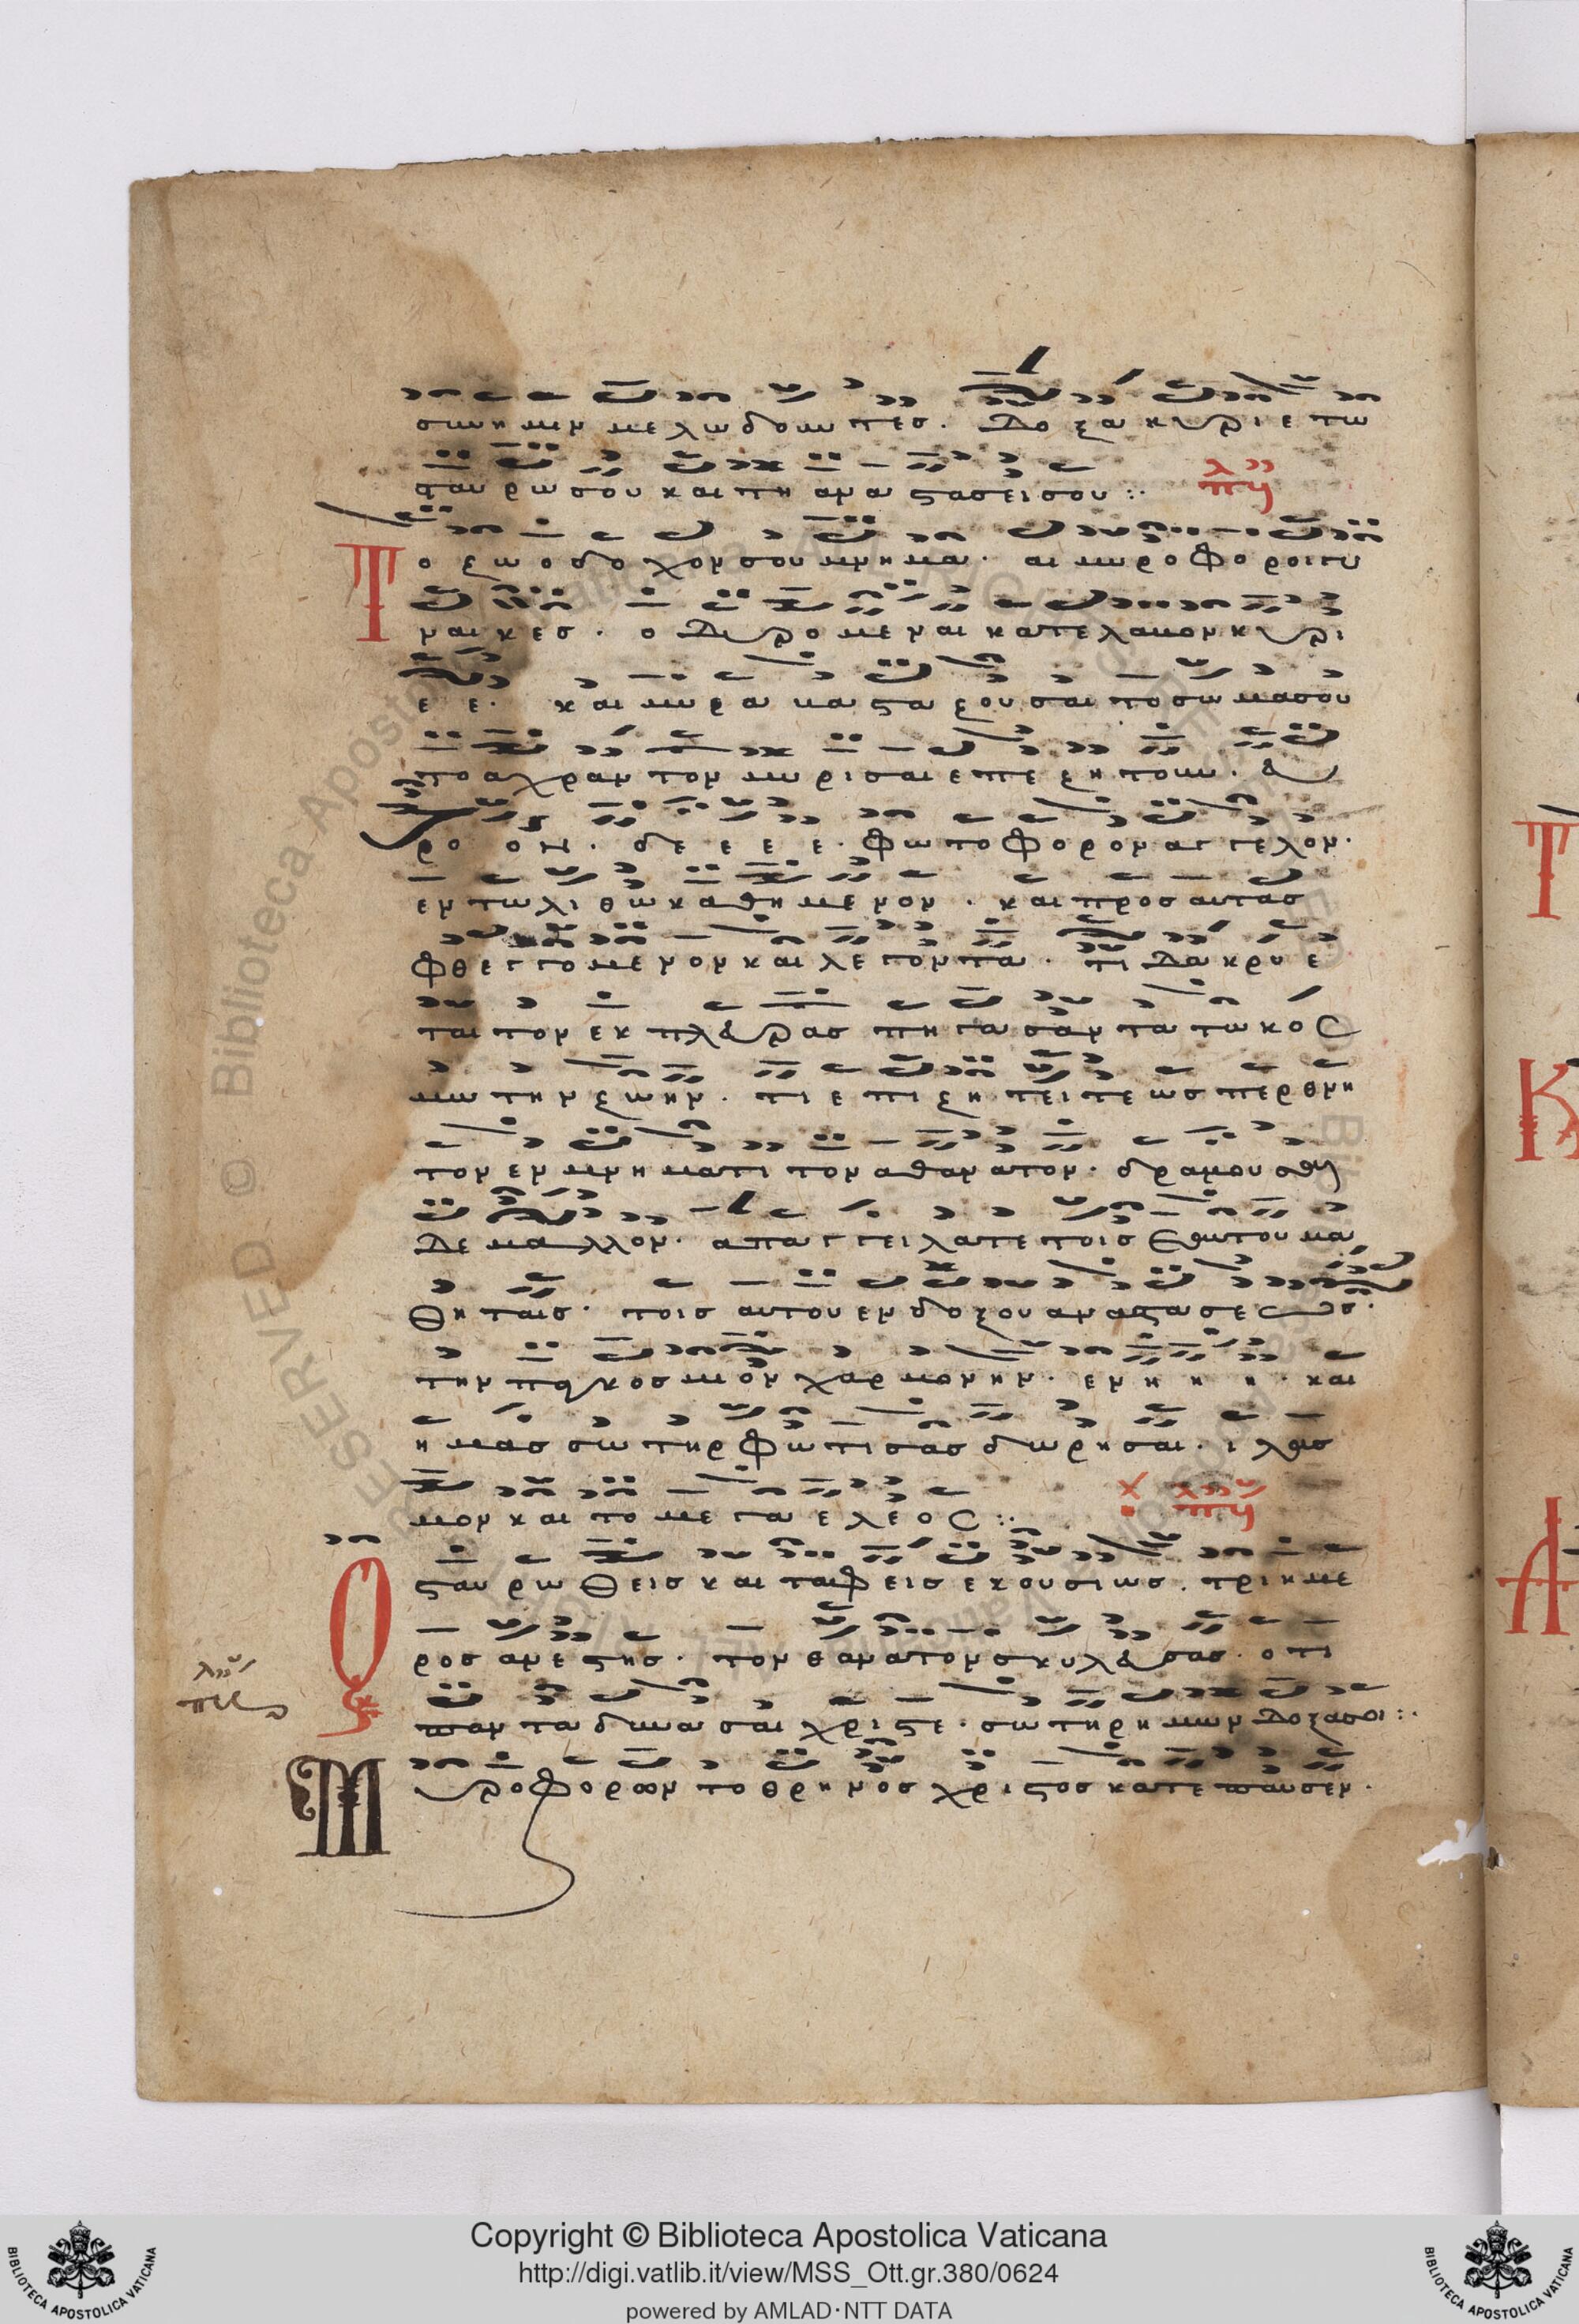 συν ημιν μελωδουντες. Δοξα κυριε τω
σταυρω σου και τη ανα στασει σου :.
Το ζωοδοχον σου μνημα. αι μυροφοροι γυ
ναικες. οδυρομεναι κατελαμον κυρι
ε ε. και μυρα μαστα ζουσαι το σωμα σου
το αχραντον μυρισαι επεζητουν. ευ
ρο ον. δε ε ε ε. φωτοφορον αγγελον.
εν τω λιθω καθημενον. και προς αυτας
φθεγγομενον και λεγοντα. τι δακρυε
ται τον εκ πλευρας πηγασαντα τω κοσ
μω την ζωην. τι επιζητειτε ως περ θνη
τον εν μνηματι τον αθανατον. δραμουσαι
δε μαλλον. απαγγειλατε τοις αυτου μα
θηταις. τοις αυτου ενδοξου αναστασεως.
την παγκοσμιον χαρμονην. εν η η η. και
ημας σωτηρ φωτισας δωρησαι. ιλασ
μον και το μεγα ελεος :.
Ο σταυρωθεις και ταφεις εκουσιως. τριημε
ρος ανεστης. τον θανατον σκυλευσας. οτι
παντα δυνασαι χριστε. σωτηρ ημων δοξασοι :.
Μυροφορων το θρηνος χριστος κατεπαυσεν.
Copyright © Biblioteca Apostolica Vaticana
http://digi.vatlib.it/view/MSS_Ott.gr.380/0624
powered by AMLAD·NTT DATA